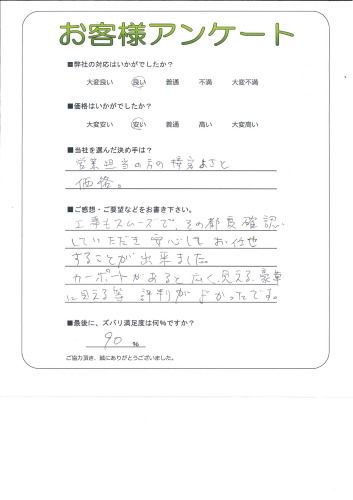 お客様アンケート
■弊社の対応はいかがでしたか？
大変良い 良い 普通 不満 大変不満
■価格はいかがでしたか？
大変安い 安い 普通 高い 大変高い
■当社を選んだ決め手は？
営業担当の方の接客
価格。
■ご感想・ご要望などをお書き下さい。
工事もスムーズで、その都度確認
していただき安心してお任せ
することが出来ました。
カーポートがあると広く見える、豪華
に見える等 評判がよかったです。
■最後に、ズバリ満足度は何％ですか？
90 ％
ご協力頂き、誠にありがとうございました。